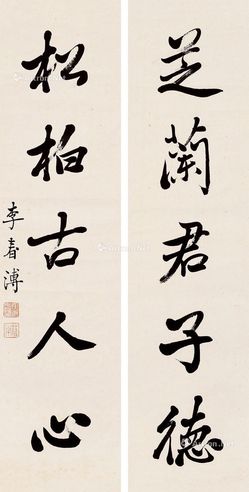 芝蘭君子德
松柏古人心
李春溥